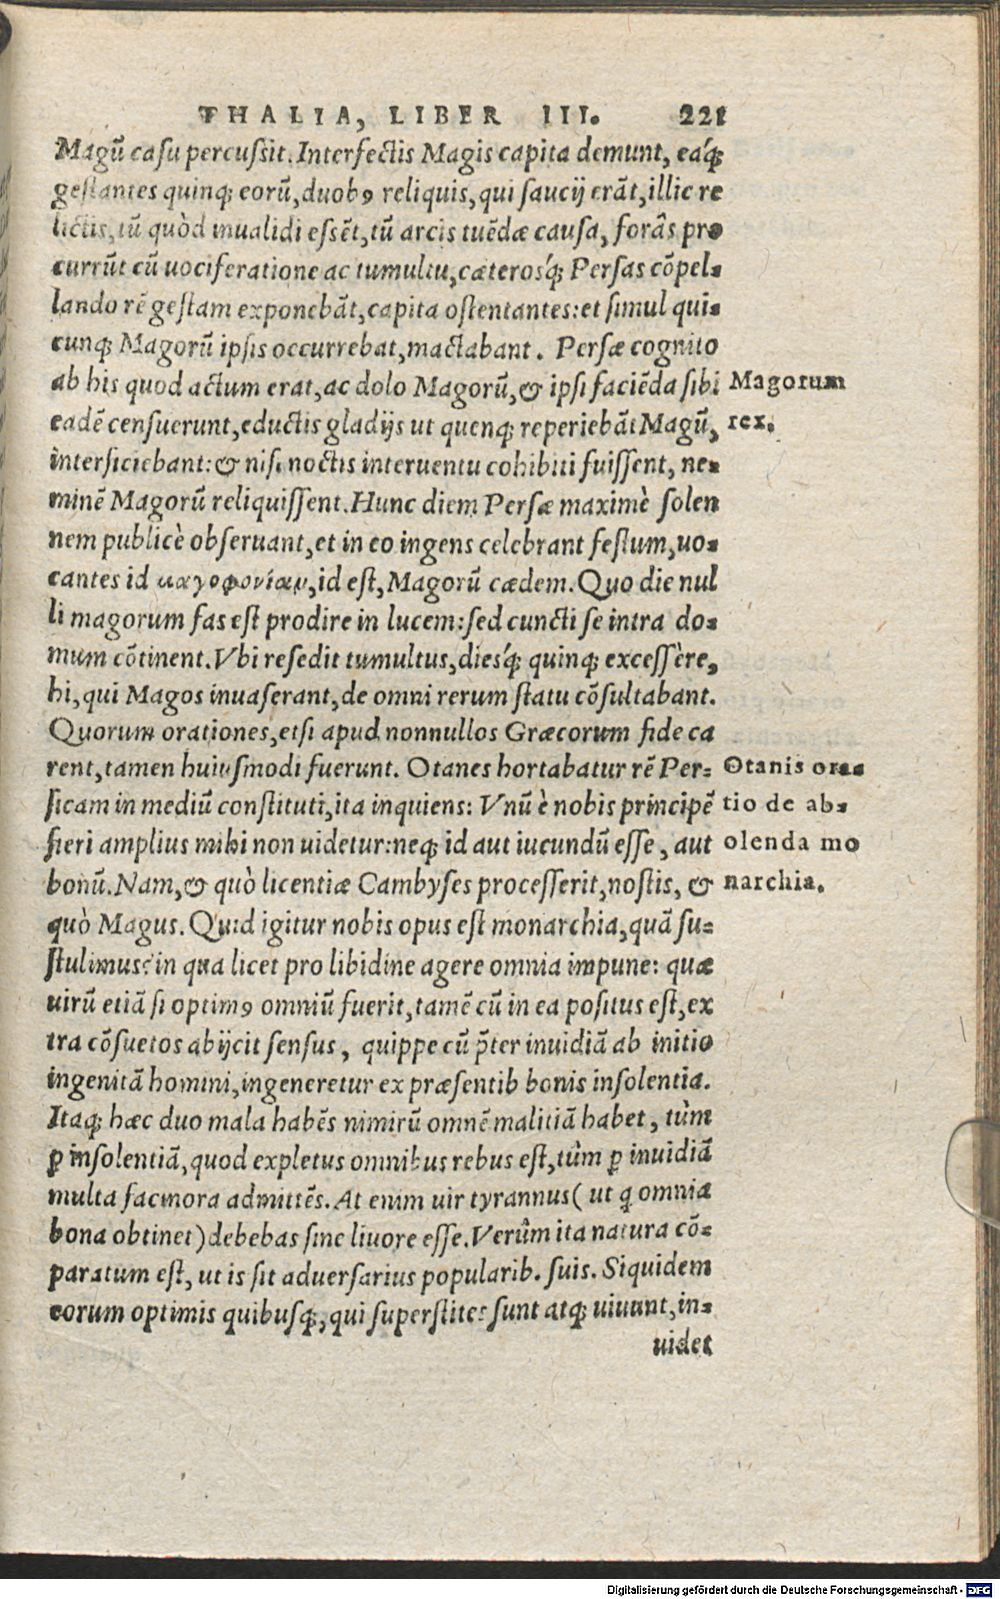 THALIA, LIBER III. 221
Magũ casu percussit. Interfectis Magis capita demunt, eaq́;
gestantes quinq; eorũ, duobꝰ reliquis, qui saucij erãt, illic re
lictis, tũ quòd inualidi essẽt, tũ arcis tuẽdæ causa, forâs pro
currũt cũ uociferatione ac tumultu, cæterosq́; Persas cõpel-
lando rẽ gestam exponebãt, capita ostentantes: et simul qui-
cunq; Magorũ ipsis occurrebat, mactabant. Persæ cognito
ab his quod actum erat, ac dolo Magorũ, & ipsi faciẽda sibi
Magorum
eadẽ censuerunt, eductis gladijs ut quenq; reperiebãt Magũ,
rex.
interficiebant: & nisi noctis interuentu cohibiti fuissent, ne-
minẽ Magorũ reliquissent. Hunc diem Persæ maximè solen
nem publicè obseruant, et in eo ingens celebrant festum, uo-
cantes id μαγοφονίαν, id est, Magorũ cædem. Quo die nul
li magorum fas est prodire in lucem: sed cuncti se intra do-
mum cõtinent. Vbi resedit tumultus, diesq́; quinq; excessère,
hi, qui Magos inuaserant, de omni rerum statu cõsultabant.
Quorum orationes, etsi apud nonnullos Græcorum fide ca
rent, tamen huiusmodi fuerunt. Otanes hortabatur rẽ Per-
Otanis ora-
sicam in mediũ constituti, ita inquiens: Vnũ è nobis principẽ
tio de ab-
fieri amplius mihi non uidetur: neq; id aut iucundũ esse, aut
olenda mo
bonũ. Nam, & quò licentiæ Cambyses processerit, nostis, &
narchia.
quò Magus. Quid igitur nobis opus est monarchia, quã su-
stulimus: in qua licet pro libidine agere omnia impune: quæ
uirũ etiã si optimꝰ omniũ fuerit, tamẽ cũ in ea positus est, ex
tra cõsuetos abijcit sensus, quippe cũ p̃ter inuidiã ab initio
ingenitã homini, ingeneretur ex præsentib bonis insolentia.
Itaq; hæc duo mala habẽs nimirũ omnẽ malitiã habet, tùm
ꝑ insolentiã, quod expletus omnibus rebus est, tùm ꝑ inuidiã
multa facinora admittẽs. At enim uir tyrannus (ut q̃ omnia
bona obtinet) debebas sine liuore esse. Verùm ita natura cõ-
paratum est, ut is sit aduersarius popularib. suis. Siquidem
eorum optimis quibusq;, qui superstites sunt atq; uiuunt, in-
uidet
Digitalisierung gefördert durch die Deutsche Forschungsgemeinschaft - DFG